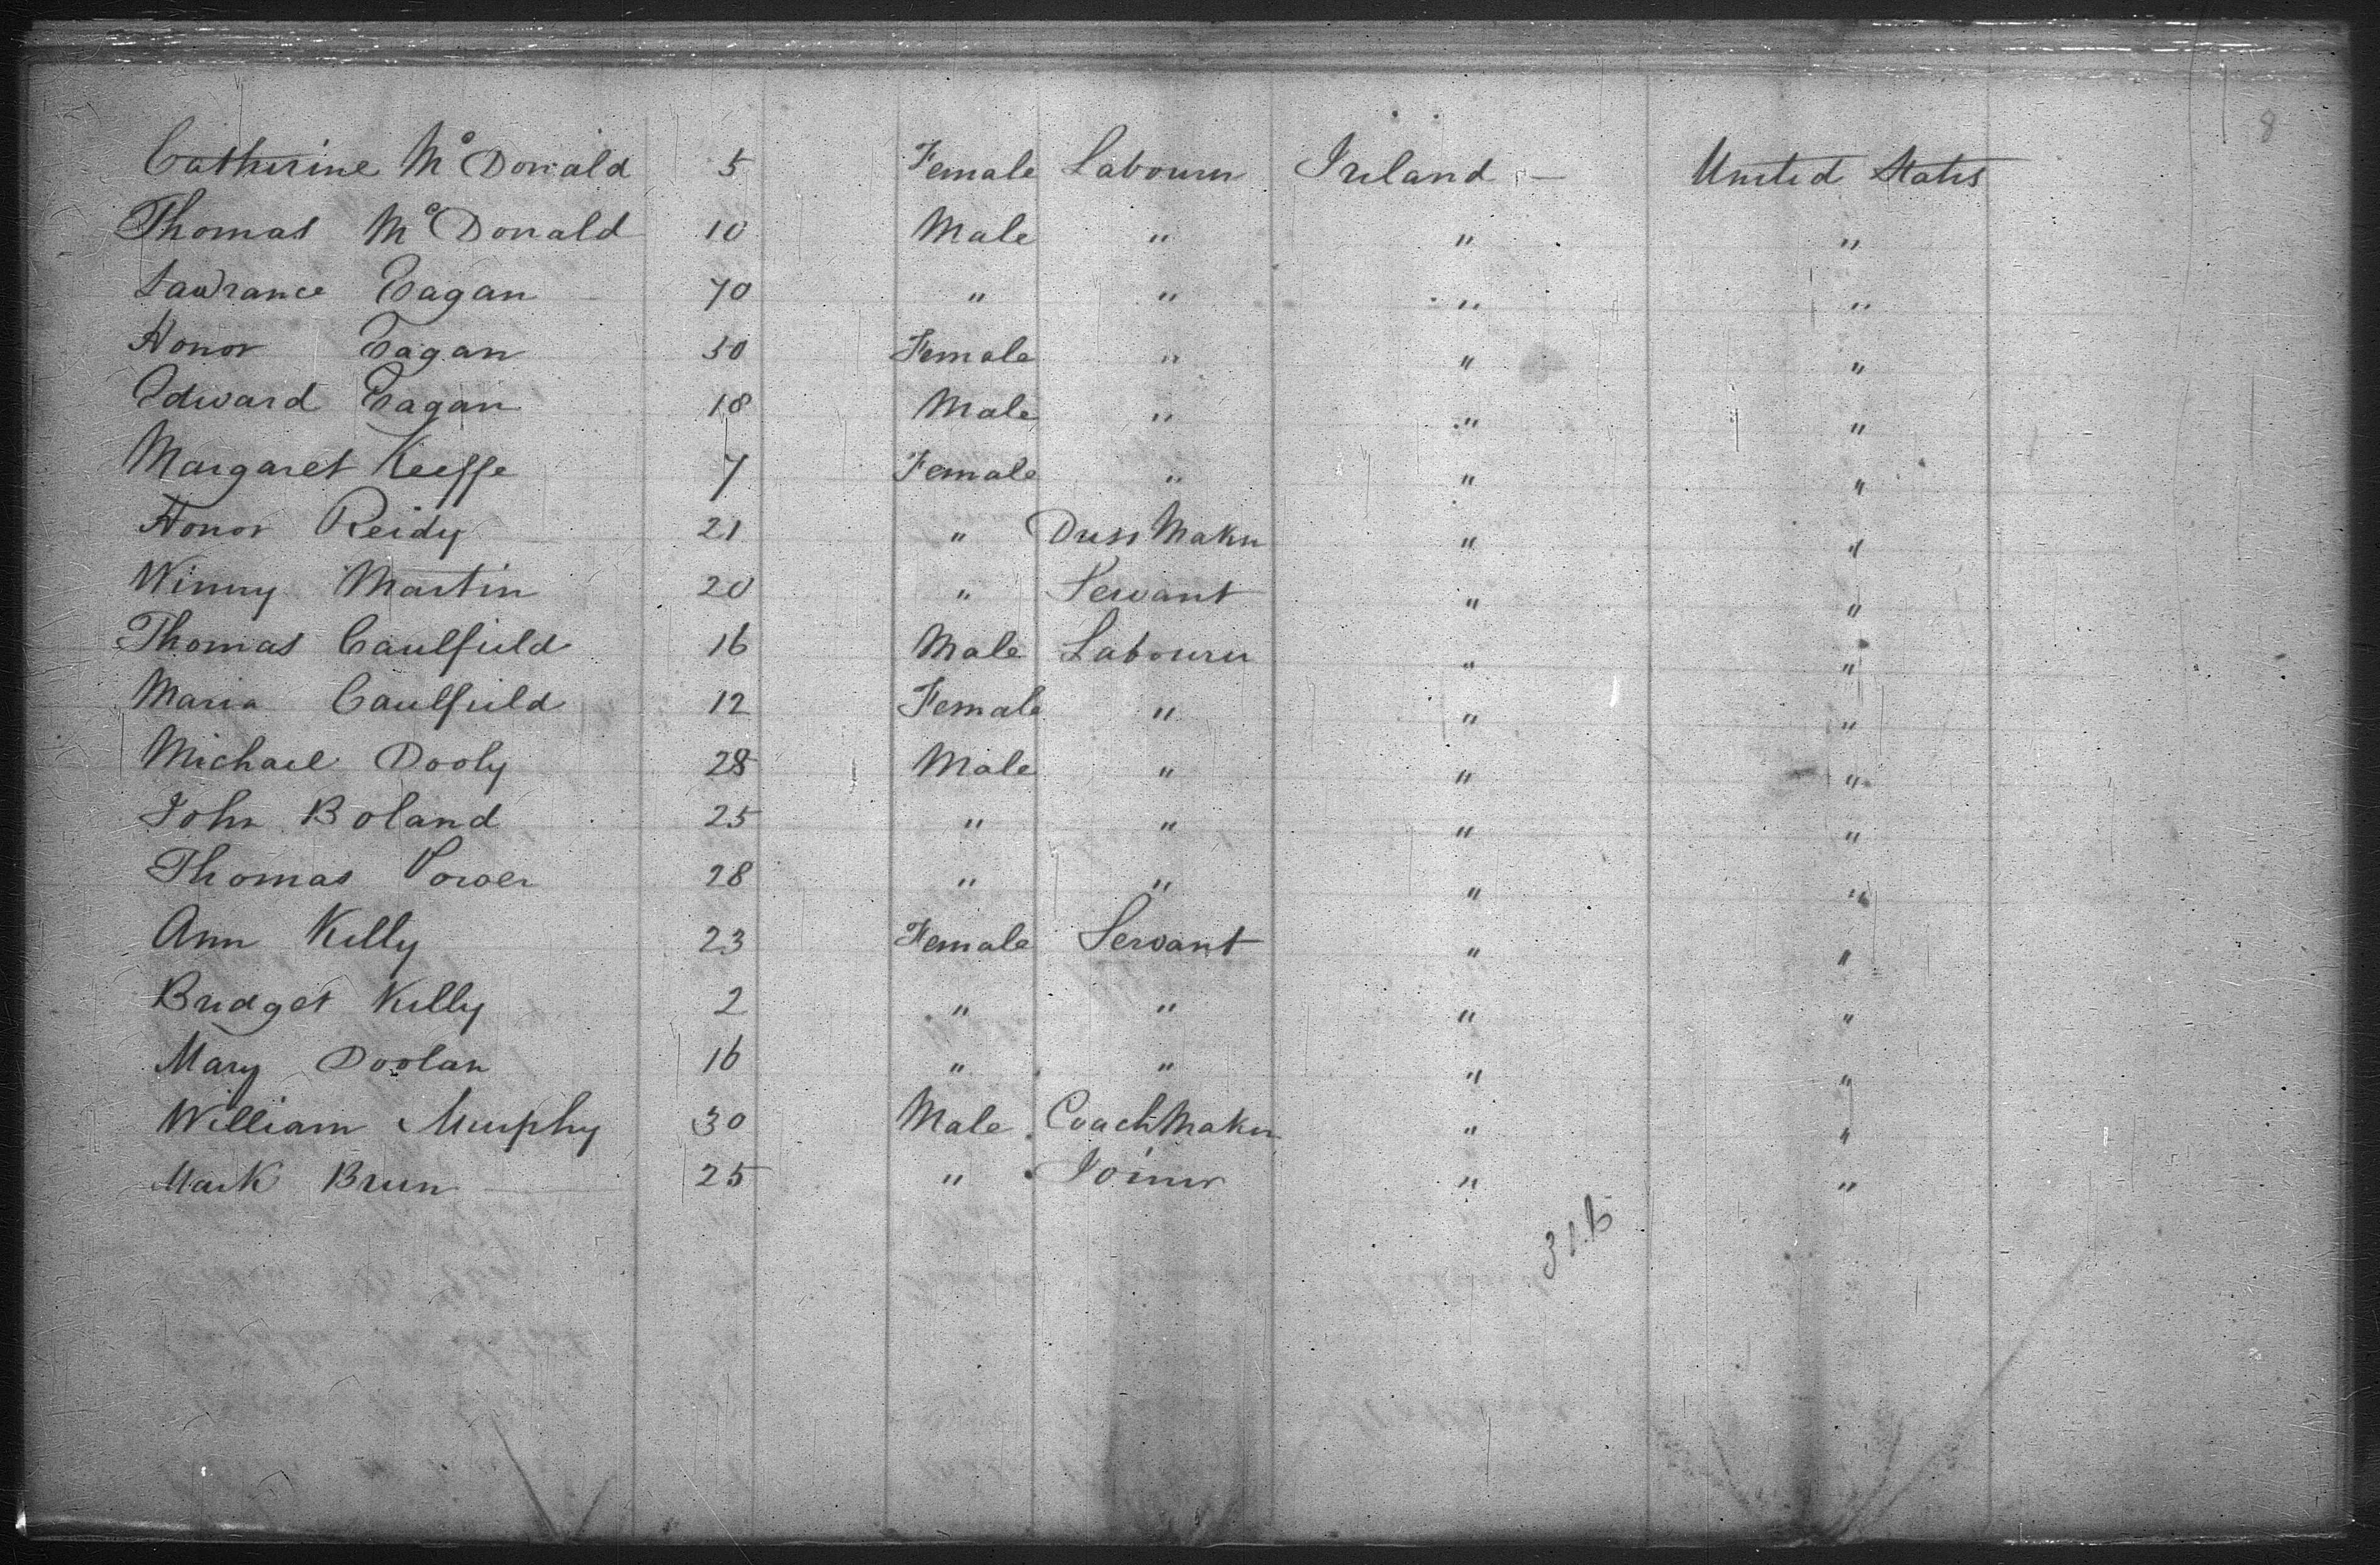 8
Catherine McDonald 5 Female Labourer Ireland — United States
Thomas McDonald 10 Male " " "
Lawrance Eagan 70 " " " "
Honor Eagan 30 Female " " "
Edward Eagan 18 Male " " "
Margaret Keeffe 7 Female " " "
Honor Reidy 21 " Dress Maker " "
Winny Martin 20 " Servant " "
Thomas Caulfield 16 Male Labourer " "
Maria Caulfield 12 Female " " "
Michael Dooly 28 Male " " "
John Boland 25 " " " "
Thomas Power 28 " " " "
Ann Kelly 23 Female Servant " "
Bridget Kelly 2 " " " "
Mary Doolan 16 " " " "
William Murphy 30 Male Coach Maker " "
Mark Breen 25 " Joiner " "